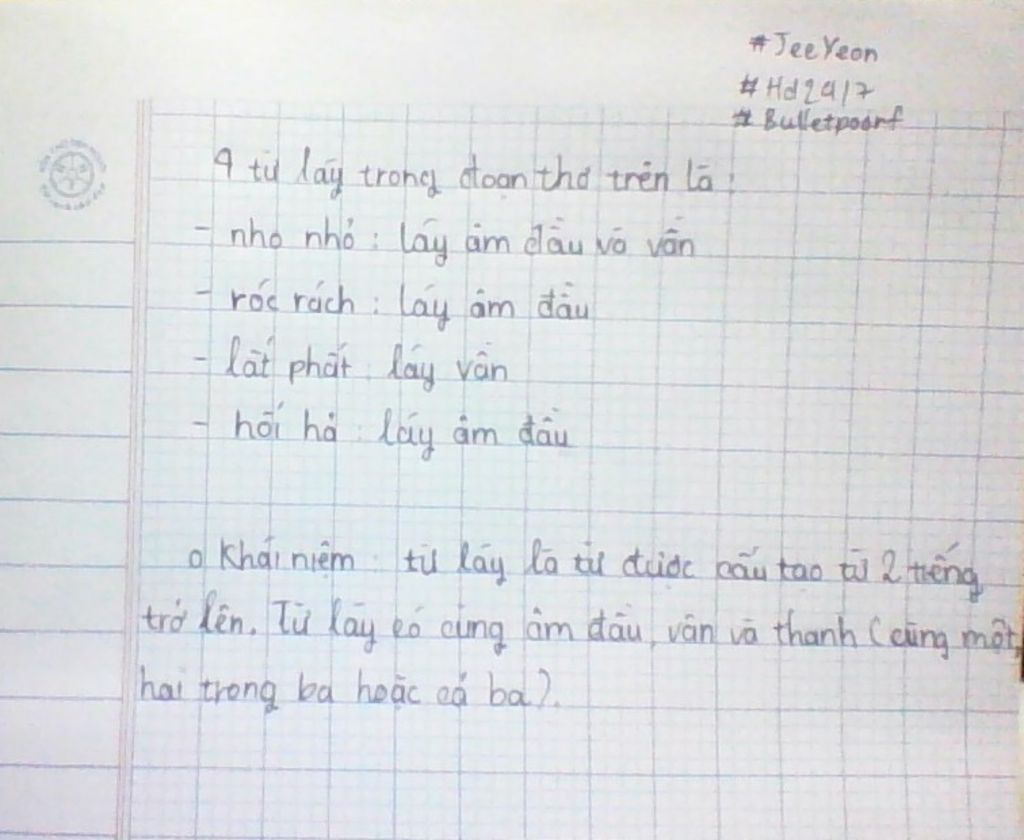 #JeeYeon
#Hd247
#Bulletpoorf
4 từ láy trong đoạn thơ trên là:
- nho nhỏ: láy âm đầu và vần
- róc rách: láy âm đầu
- lất phất: láy vần
- hối hả: láy âm đầu
o Khái niệm: từ láy là từ được cấu tạo từ 2 tiếng
trở lên. Từ láy có cùng âm đầu, vần và thanh (cùng một,
hai trong ba hoặc cả ba).